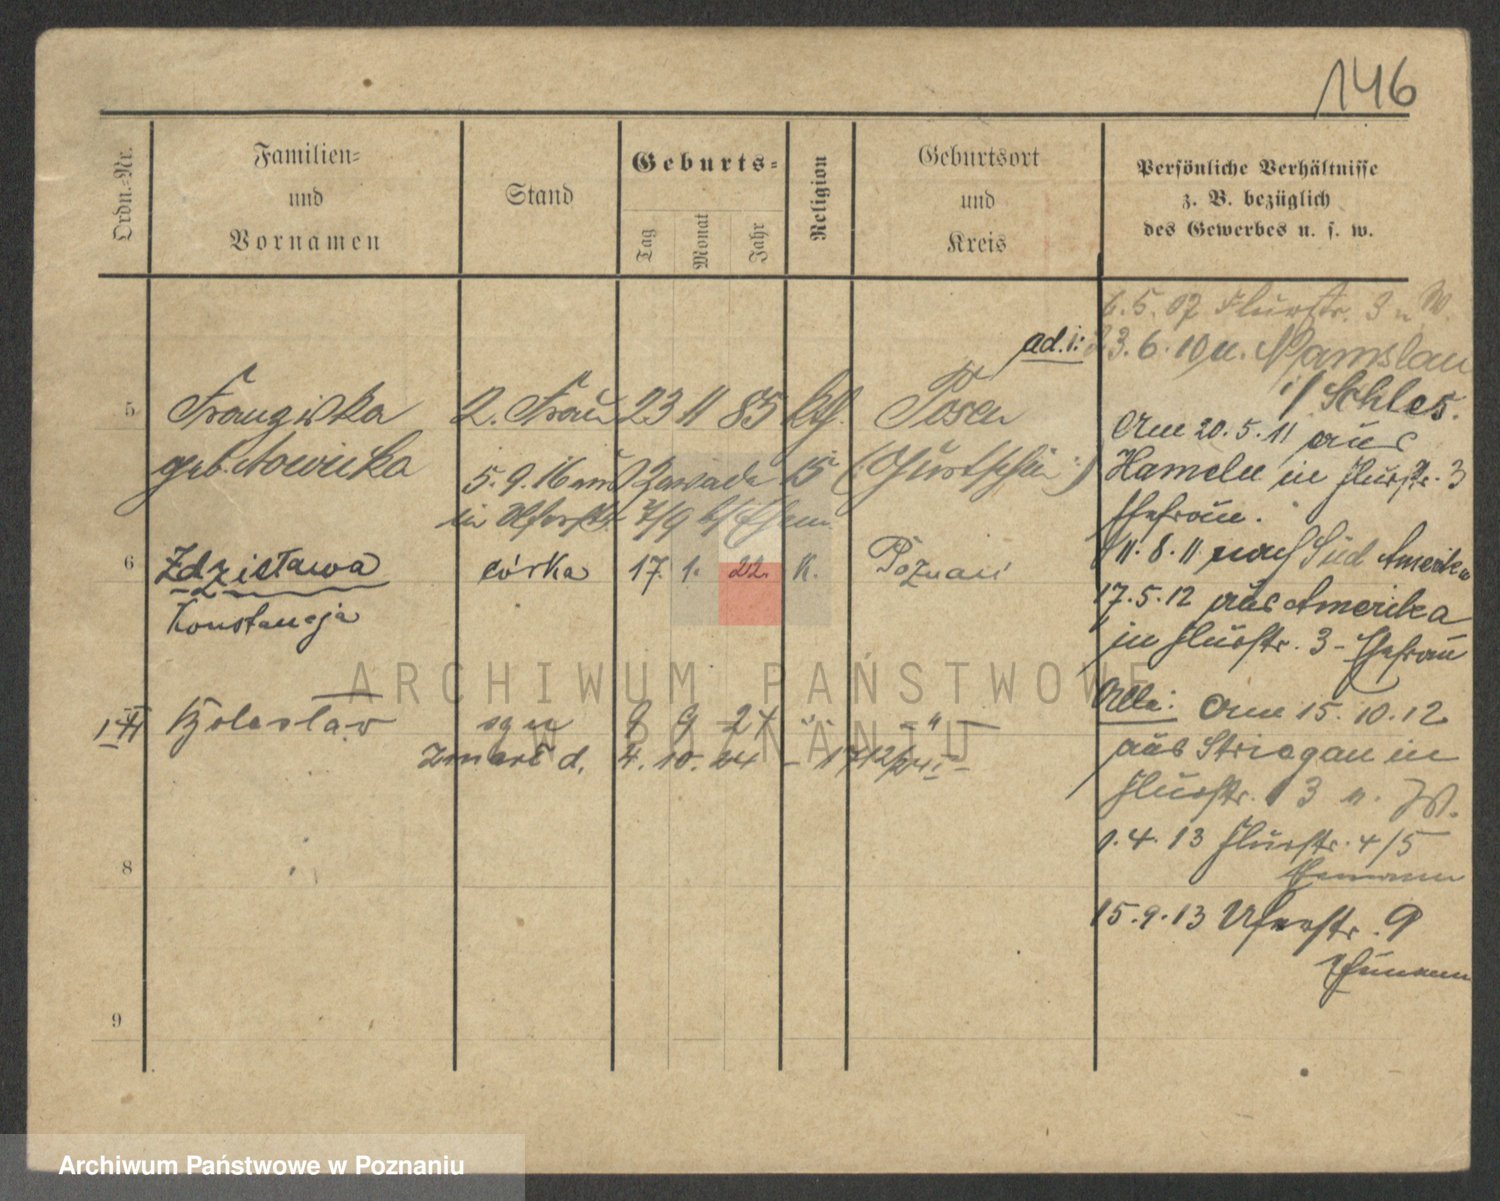 146
Ordn.-Nr.
Familien-
und
Vornamen
Stand
Geburts-
Tag
Monat
Jahr
Religion
Geburtsort
und
Kreis
Persönliche Verhältnisse
z. B. bezüglich
des Gewerbes u. s. w.
6.5.07 Flurstr. 3 u W.
ad. 1: 23.6.10 u. Namslau
i/ Schles.
5 Franziska 2. Frau 23 11 85 kth. Posen
geb. Nowicka
5.9.16 Zawade 15 (Gurtschin)
in 7/9
Am 20.5.11 aus
Hameln in Flurstr. 3
Ehefrau.
11.8.11 nach Süd Amerika
17.5.12 aus Amerika
in Flurstr. 3 - Ehefrau
6 Zdzisława córka 17. 1. 22. K. Poznań
Konstancja
Bolesław syn 8 9 24 -"- -"-
Zmarł d. 4. 10. 24
Alle: Am 15.10.12
aus Striegau in
Flurstr. 3 u. W.
1.4.13 Flurstr. 4/5
Ehemann
15.9.13 Uferstr. 9
Ehemann
8
9
ARCHIWUM PAŃSTWOWE
W POZNANIU
Archiwum Państwowe w Poznaniu